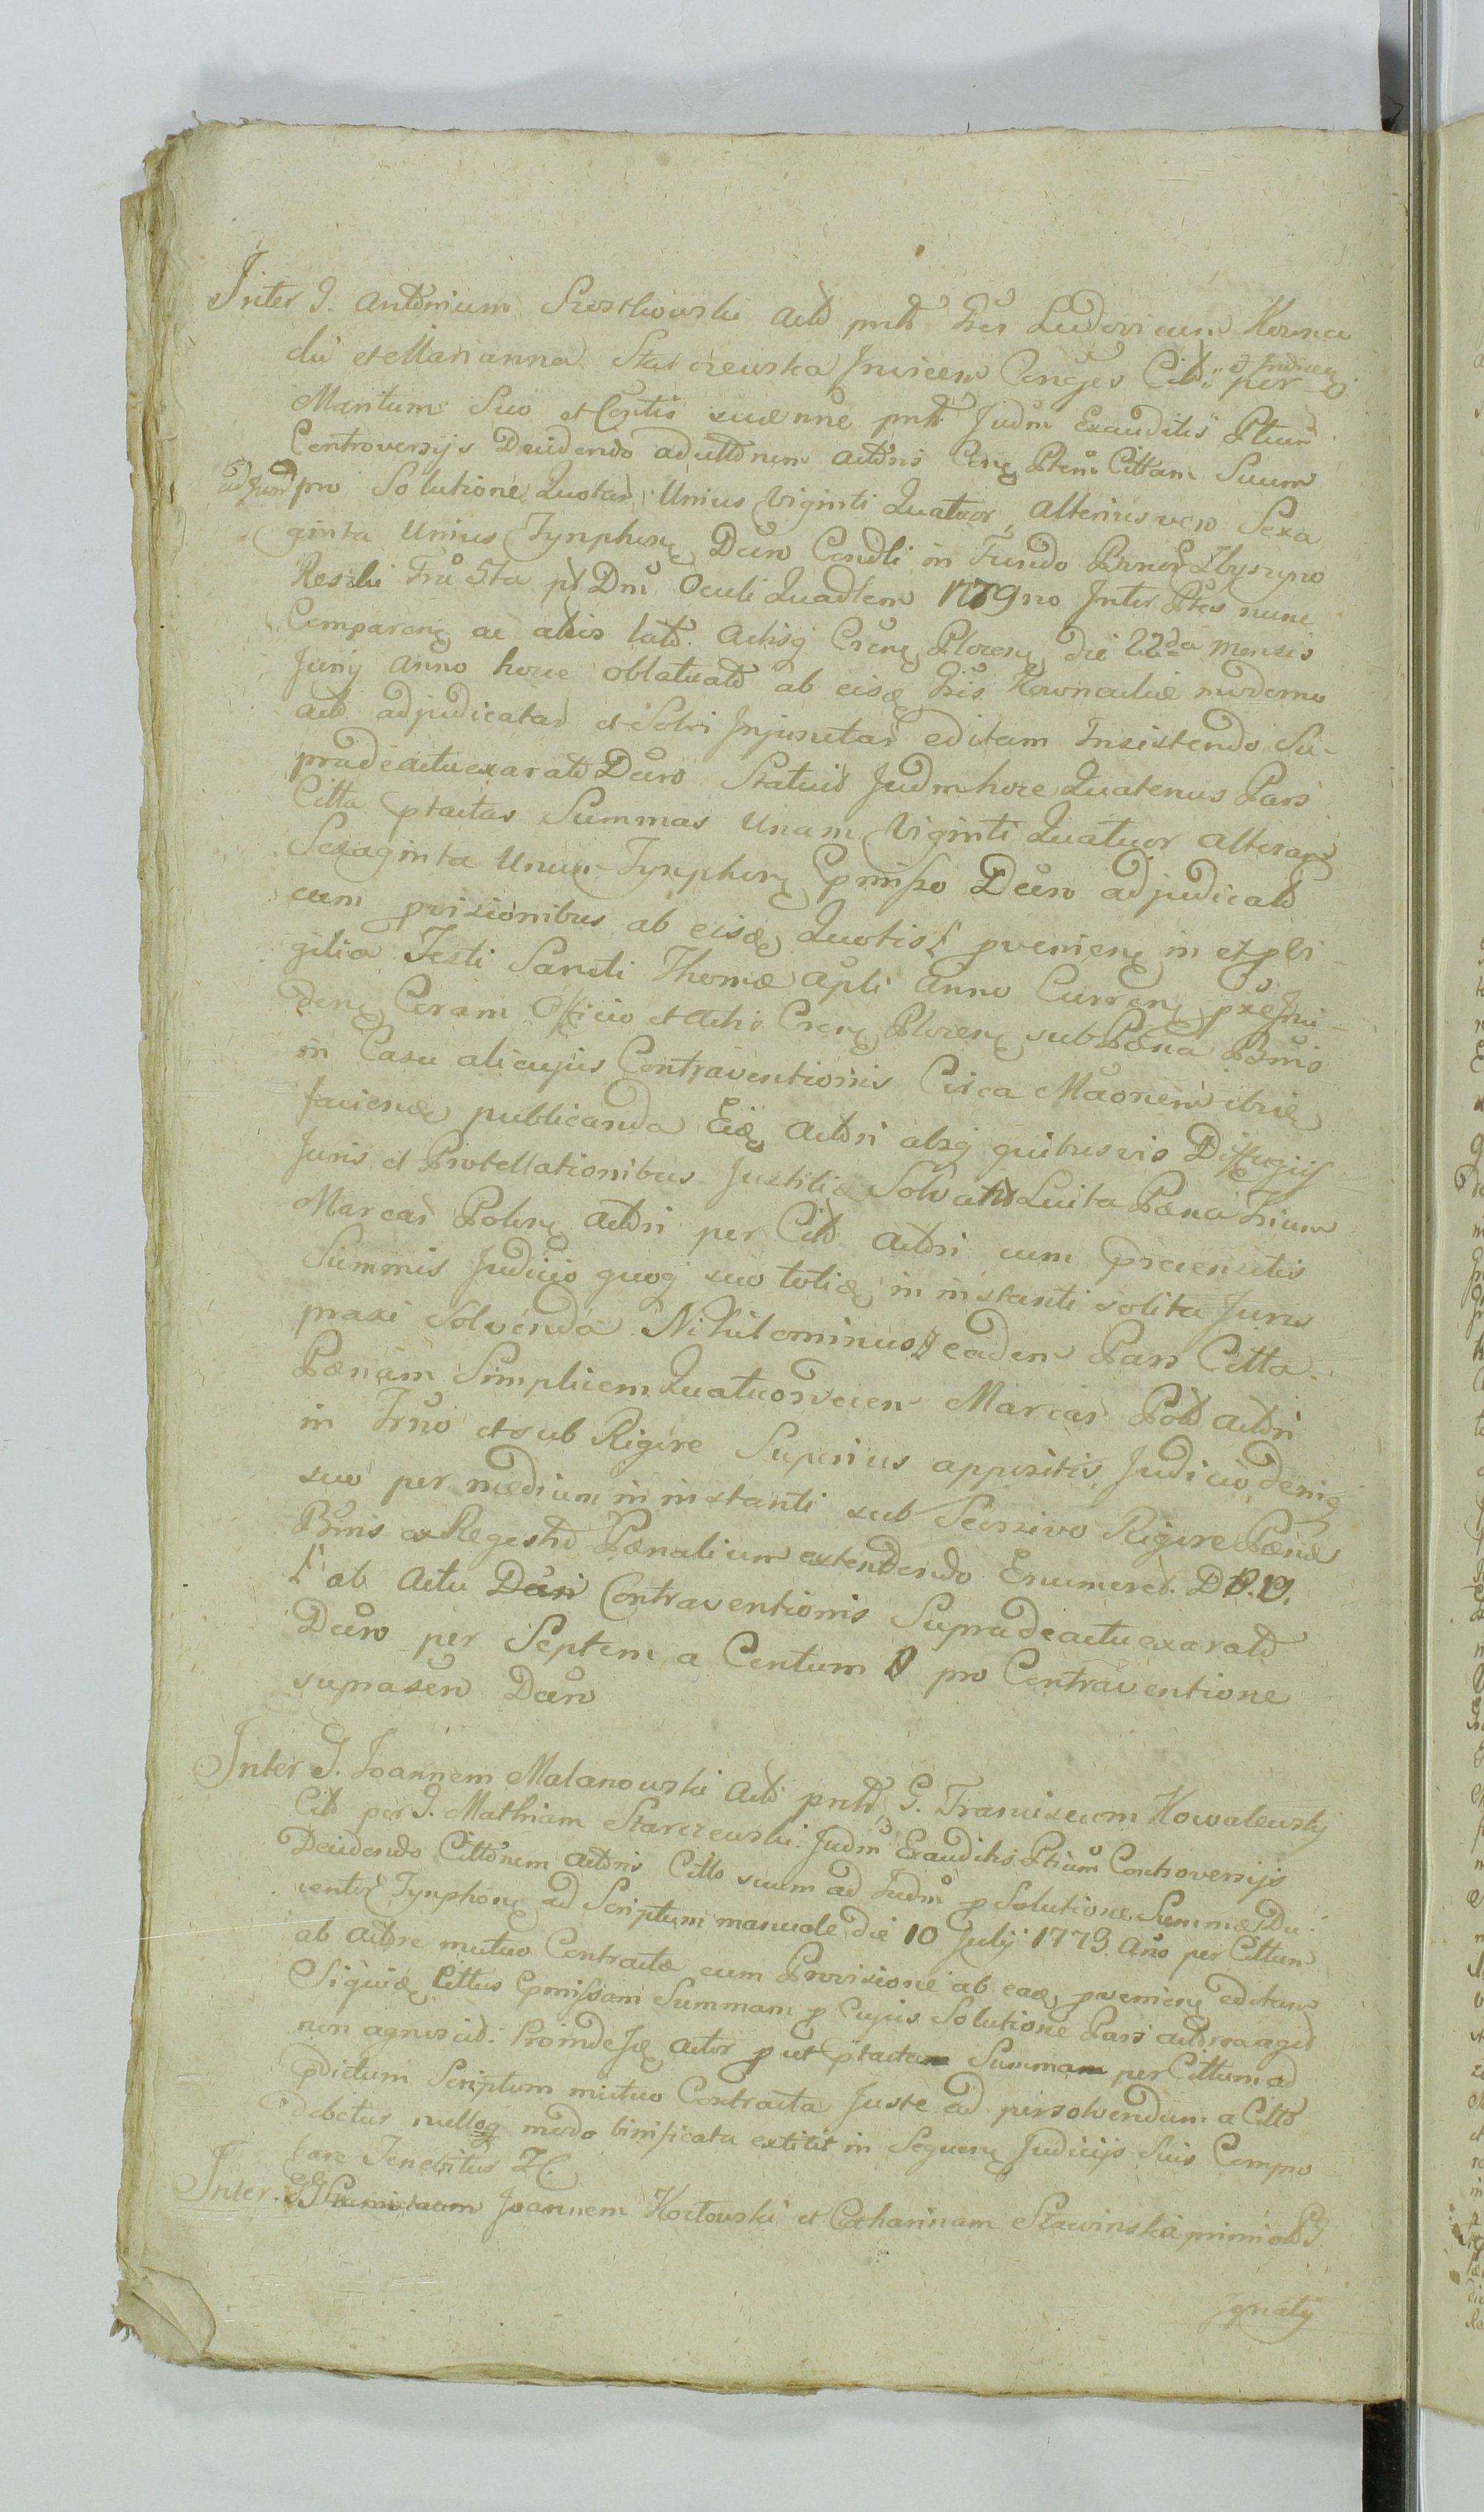 Inter G. Antonium Szostkowski Actō pnte GGes Ludovicum Kowna
cki et Mariannā Starczewska Invicem Conges Citt. per G Judicem
Maritum Suō et Coptis suæ nne pnte Judm Exauditis Ptium
Controversijs Decidendo ad cittōnem actōris Conq Ptem Cittam Suum
ad Judm pro Solutione Quotar Unius Viginti Quatuor, alterius vero Sexa
ginta Unius Tynphorq Decro Condli in Fundo Bonorq Zbyszyno
Reski Fra 5ta pt Dnī Oculi Quadlem 1779no Inter Ptes nunc
Comparenq ac aliis latō Actisq Crenq Plocenq die 22da Mensis
Junij anno hocce oblatuatō ab eisq GGis Kownackie moderno
actō adjudicatar et Solvi Injunctar editam Insistendo Su-
pradeactuexaratō Decro Statuit Judm hocce Quatenus Pars
Citta ptactas Summas Unam Viginti Quatuor alteram
Sexaginta Unius Tynphorq Pmisso Decro adjudicatō
cum provisionibus ab eisdq Quotis provenienq in et pVi-
gilia Festi Sancti Thomæ Apli anno Currenq pxe Inci-
denq Coram Officio et Actis Crenq Plocenq sub Pœna Bonis
in Casu alicujus Contraventionis Circa Maonem ibiq
faciendq publicanda Eiq Actōri absq quibusvis Diffugijs
Juris et Protellationibus Justitiæ Solvat Luita Pœna Trium
Marcar Polonq Actōri per Citt Actōri cum precensitis
Summis Judicio quoq suo totiq in instanti solita Juris
praxi Solvenda Nihilominus eadem Pars Citta
Pœnam Simplicem Quatuordecem Marcar Polō Actōri
in Trno et sub Rigore Superius appositis Judicio deniq
suo per medium in instanti sub Scorsivo Rigore Pœnæ
Bonis ex Regestō Pœnalium extendendo Enumerō. D.P.D.
ab Actu Decri Contraventionis Supradeactuexaratō
Decro per Septem a Centum D pro Contraventione
suprasen Decro
Inter G. Joannem Malanowski Actō pntō G. Franciscum Kowalewskj
Citt per G. Mathiam Starczewski. Judm Exauditis Ptium Controversijs
Decidendo Cittōnem Actōris Citto suum ad Judm p Solutione Summæ Du-
centor Tynphonq ad Scriptum manuale die 10 Julij 1773 Ano per Cittum
ab Actōre mutuo Contractæ cum Provisione ab eadq provenienq editam
Siquidq Cittus Pmissam Summam p Cujus Solutione Pars Actōrea agit
non agnoscit. Proinde Iq Actor p ut ptactam Summam per Cittum ad
pdictum Scriptum mutuo Contracta Juste ad persolvendum a Citto
debetur nulloq modo bonificata extitit in Sequenq Judicijs Suis Compro
bare Tenebitur ZC.
Inter GG Joannem Kozłowski et Catharinam Sławinska primi otō G
Ignatij